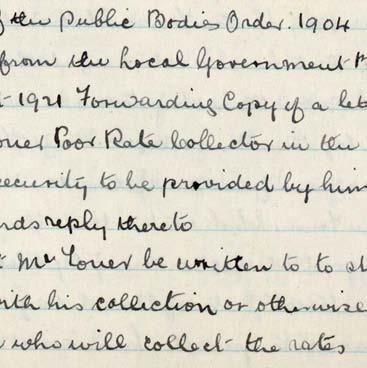 the Public Bodies Order. 1904
from the Local Government
1921 Forwarding Copy of a
Poor Rate Collector in the
security to be provided by him
reply thereto
Mr Toner be written to to
with his collection or otherwise
who will collect the rates